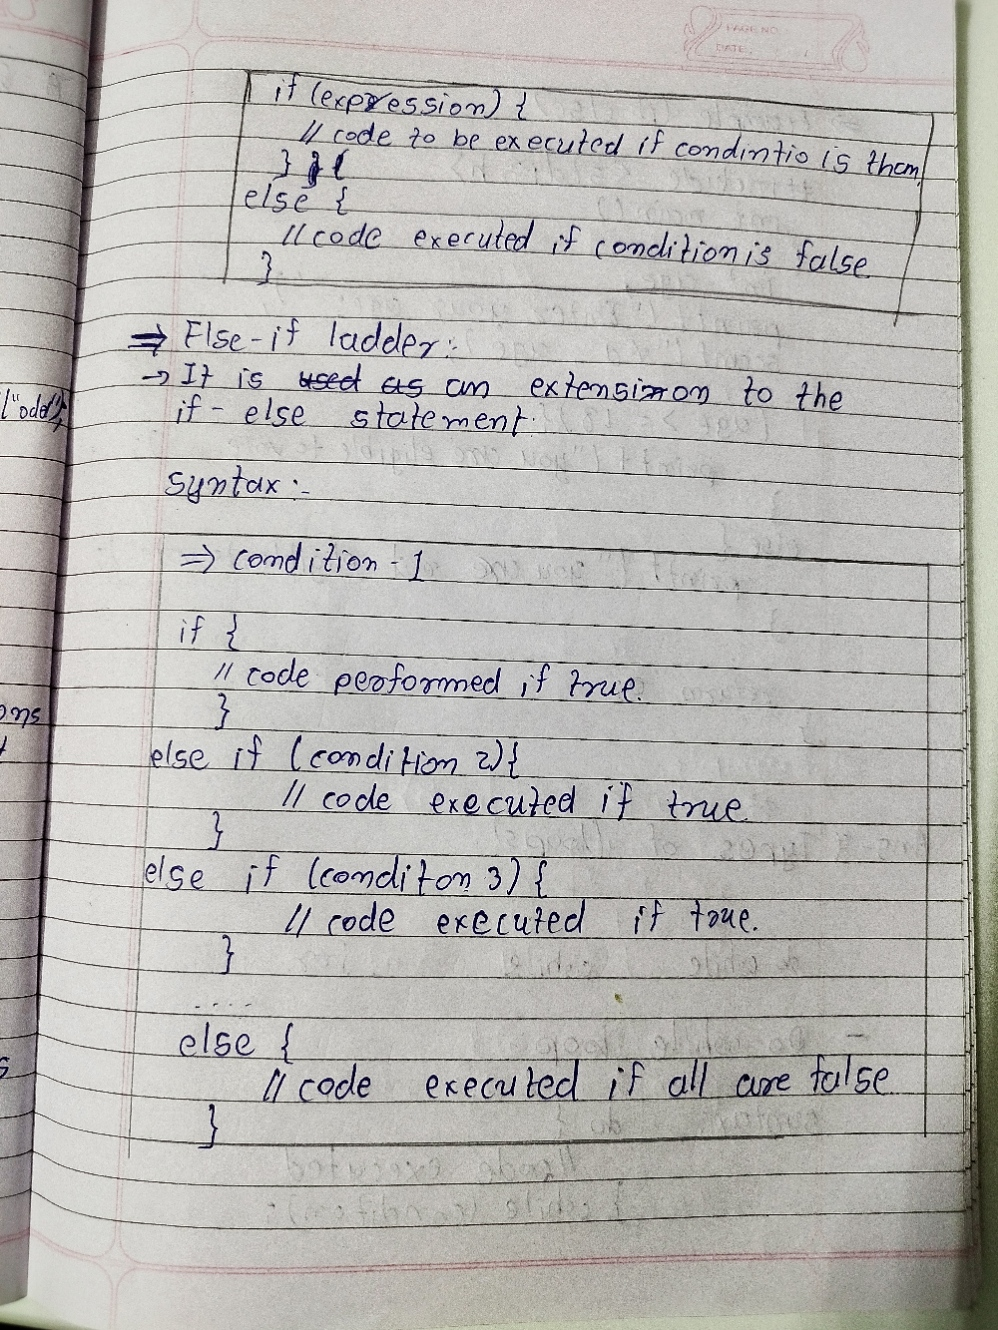 PAGE NO.
DATE:
if (expression) {
// code to be executed if condintio is then
} {
else {
// code executed if condition is false
}
⇒ Else-if ladder:-
→ It is used as an extension to the
if - else statement.
("odd");
syntax :-
⇒ condition - 1
if {
// code performed if true.
}
ons
else if (condition 2){
// code executed if true
}
else if (conditon 3) {
// code executed if true.
}
....
else {
// code executed if all are false
}